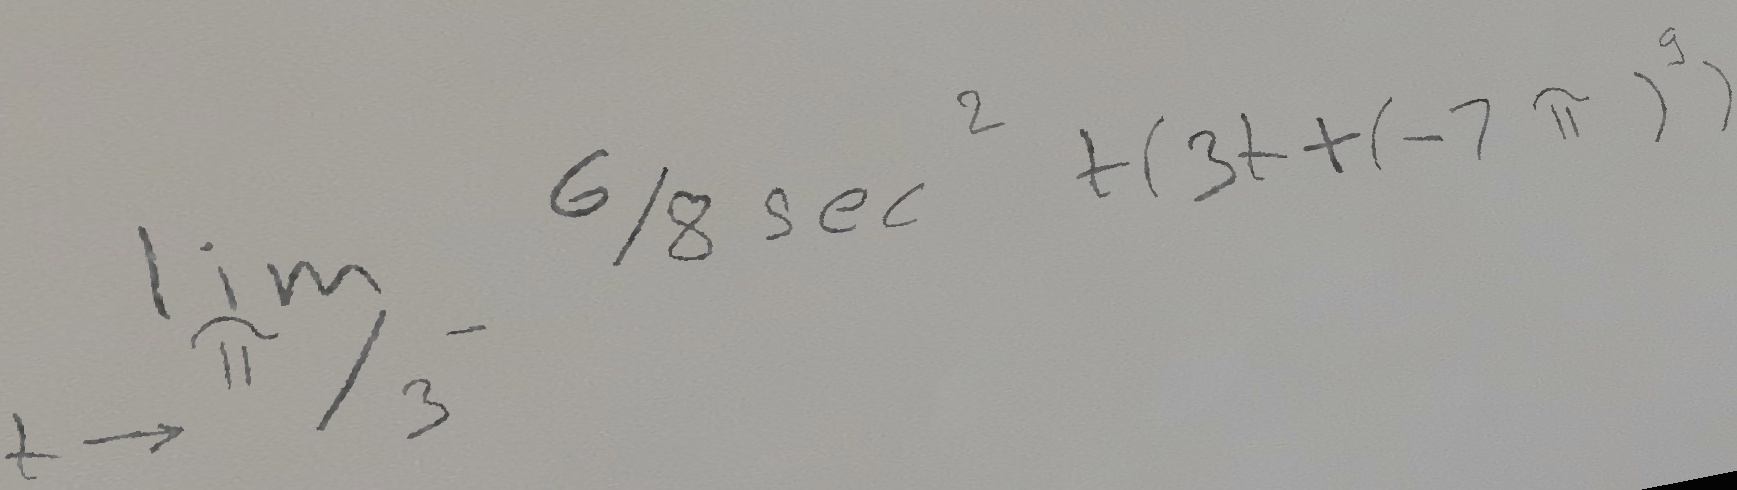 lim t → π/3⁻ 6/8 sec² t(3t + (-7π)⁹)